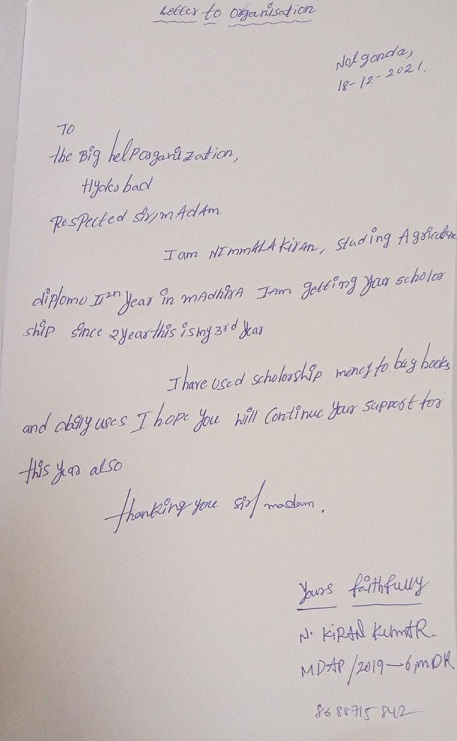 Letter to Organisation
Nalgonda,
18-12-2021.
TO
the Big help organization,
Hydrabad
Respected Sir/mAdAm
I am NImmALA KirAn, studing Agriculture
diplomo IInd Year in mAdhirA IAm getting your scholor
ship since 2 year this is my 3rd year
I have used scholorship money to buy books
and daily uses I hope you will continue your support for
this year also
thanking you sir/madam.
Yours faithfully
N. KiRAN KumAR.
MDAP/2019-6, mDR
8688715842